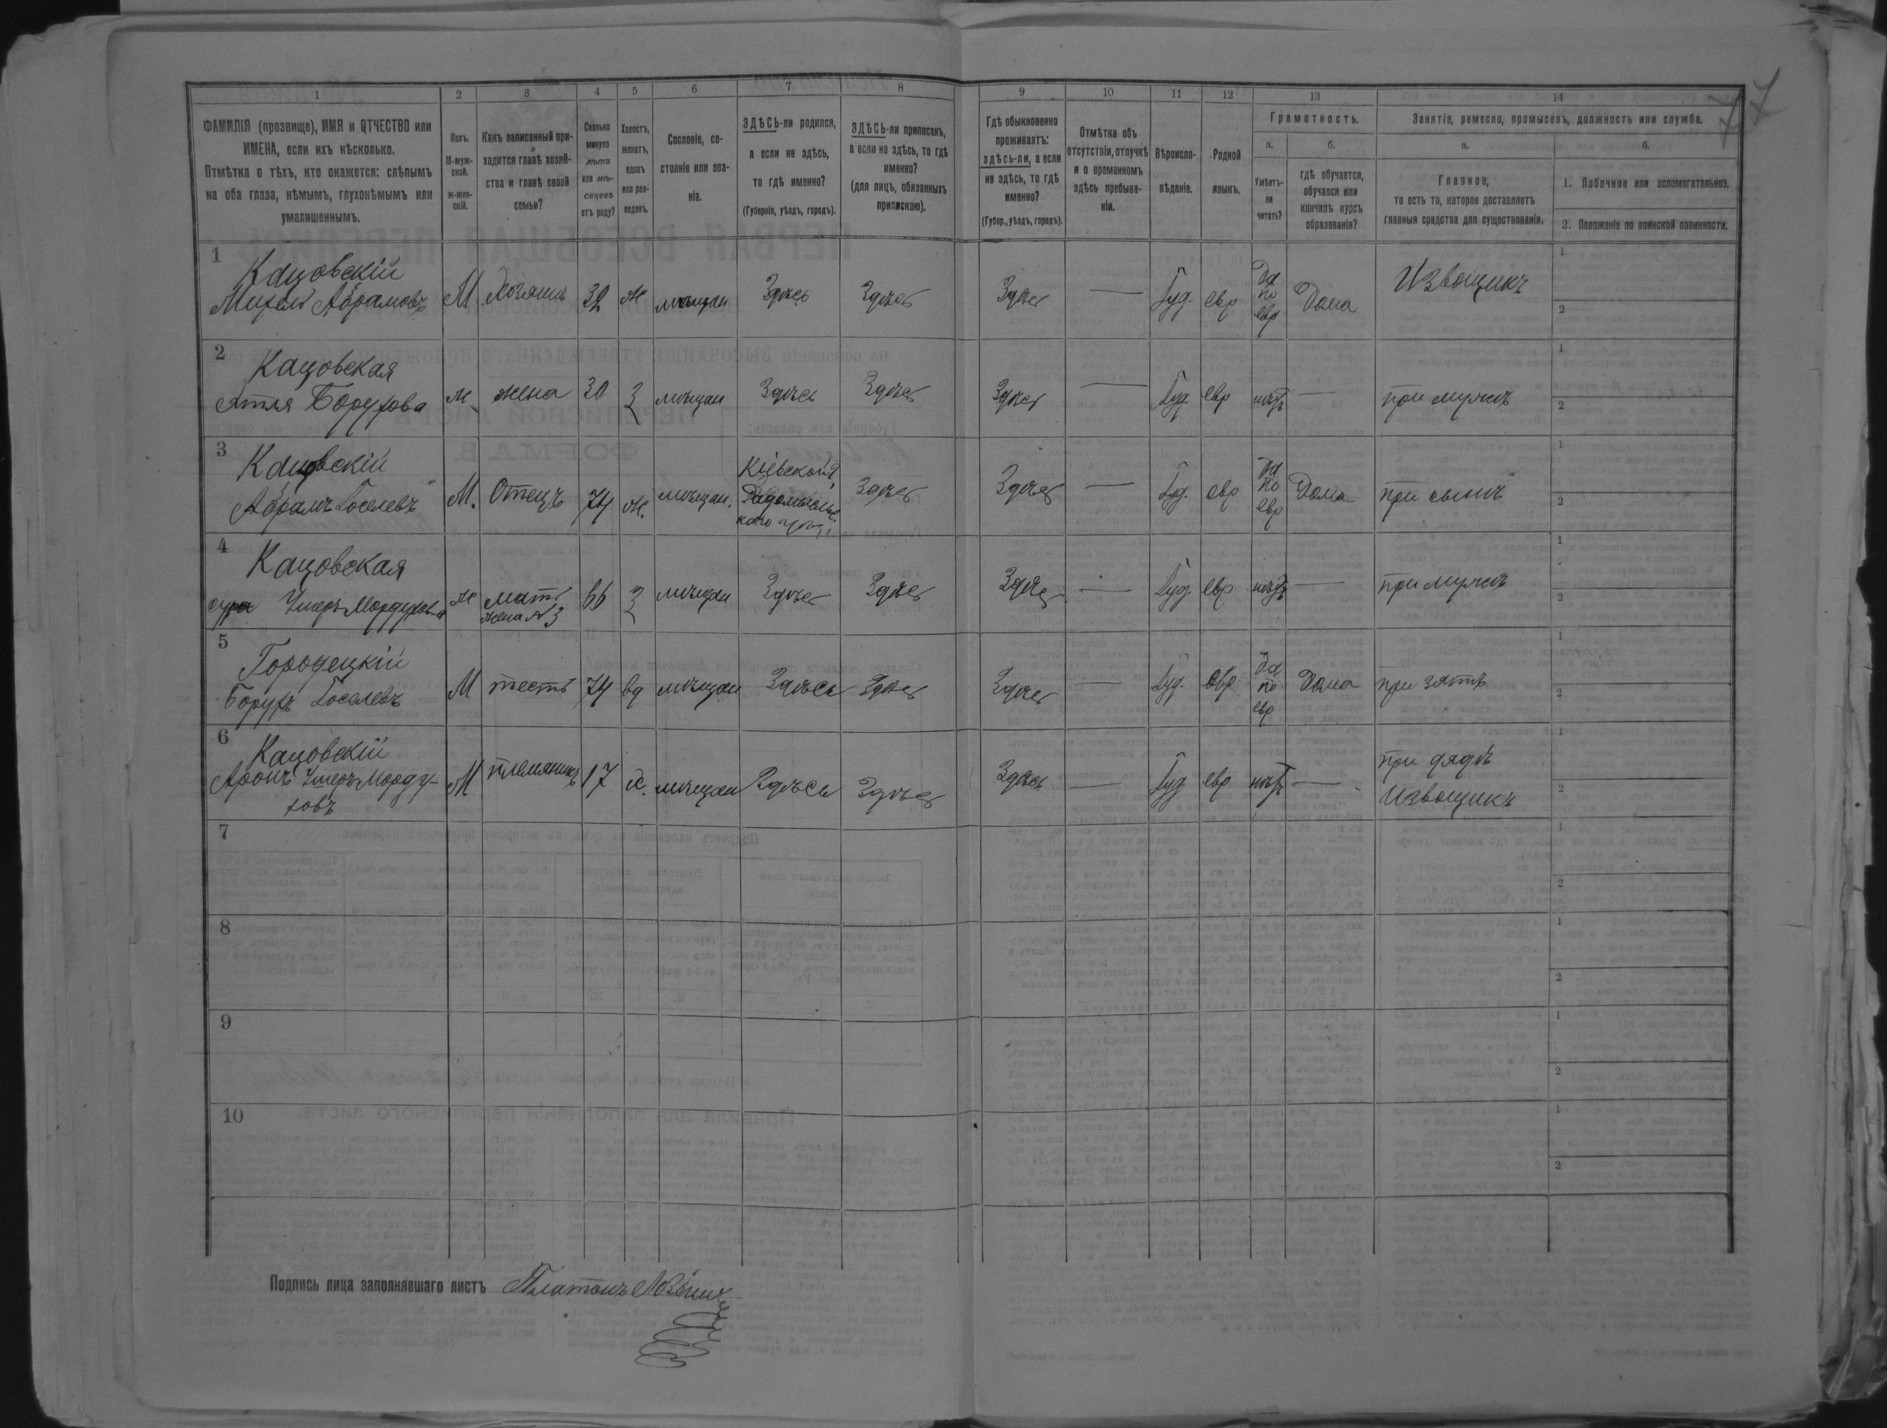 1 2 3 4 5 6 7 8 9 10 11 12 13 14
ФАМИЛІЯ (прозвище), ИМЯ и ОТЧЕСТВО или
ИМЕНА, если ихъ нѣсколько.
Отмѣтка о тѣхъ, кто окажется: слѣпымъ
на оба глаза, нѣмымъ, глухонѣмымъ или
умалишеннымъ.
Полъ.
М-муж-
ской.
Ж-жен-
скій.
Какъ записанный при-
ходится главѣ хозяй-
ства и главѣ своей
семьи?
Сколько
минуло
лѣтъ
или мѣ-
сяцевъ
отъ роду?
Холостъ,
женатъ,
вдовъ
или раз-
веденъ.
Сословіе, со-
стояніе или зва-
ніе.
ЗДѢСЬ-ли родился,
а если не здѣсь,
то гдѣ именно?
(Губернія, уѣздъ, городъ).
ЗДѢСЬ-ли приписанъ,
а если не здѣсь, то гдѣ
именно?
(для лицъ, обязанныхъ
припискою).
Гдѣ обыкновенно
проживаетъ:
здѣсь-ли, а если
не здѣсь, то гдѣ
именно?
(Губер., уѣздъ, городъ).
Отмѣтка объ
отсутствіи, отлучкѣ
и о временномъ
здѣсь пребыва-
ніи.
Вѣроиспо-
вѣданіе.
Родной
языкъ.
Грамотность.
а.
Умѣетъ-
ли
читать?
б.
гдѣ обучается,
обучался или
кончилъ курсъ
образованія?
Занятіе, ремесло, промыселъ, должность или служба.
а.
Главное,
то есть то, которое доставляетъ
главныя средства для существованія.
б.
1. Побочное или вспомогательное.
2. Положеніе по воинской повинности.
1
Кацовскій
Абрамовъ М Хозяинъ 32 ж мѣщан Здѣсь Здѣсь Здѣсь — Іуд. евр Да по евр Дома Извощикъ
2
Кацовская
Борухова ж жена 30 З мѣщан Здѣсь Здѣсь Здѣсь — Іуд евр нѣтъ — при мужѣ
3
Кацовскій
Абрамъ Іоселевъ М. Отецъ 74 ж. мѣщан. Кіевской Радомысльс- кого уѣзд. Здѣсь Здѣсь — Іуд. евр Да по евр Дома при сынѣ
4
Кацовская
Мордухова ж мать жена №3 66 З мѣщан Здѣсь Здѣсь Здѣсь — Іуд евр нѣтъ — при мужѣ
5
Городецкій
Борухъ Іоселевъ М тесть 74 вд мѣщан Здѣсь Здѣсь Здѣсь — Іуд. евр Да по евр Дома при зятѣ
6
Кацовскій
Аронъ Морду-
ховъ М племяникъ 17 х. мѣщан Здѣсь Здѣсь Здѣсь — Іуд евр нѣтъ — при дядѣ Извощикъ
7
8
9
10
Подпись лица заполнявшаго листъ Платонъ